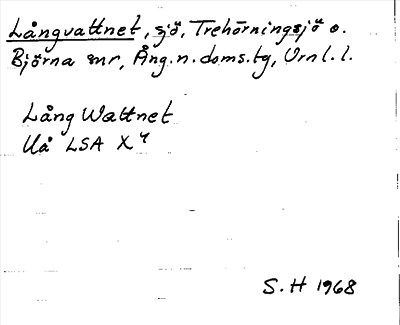 Långvattnet, sjö, Trehörningsjö o.
Björna snr, Ång.n.doms.tg, Vrnl.l.
Lång Wattnet
Uå LSA X4
S.H 1968